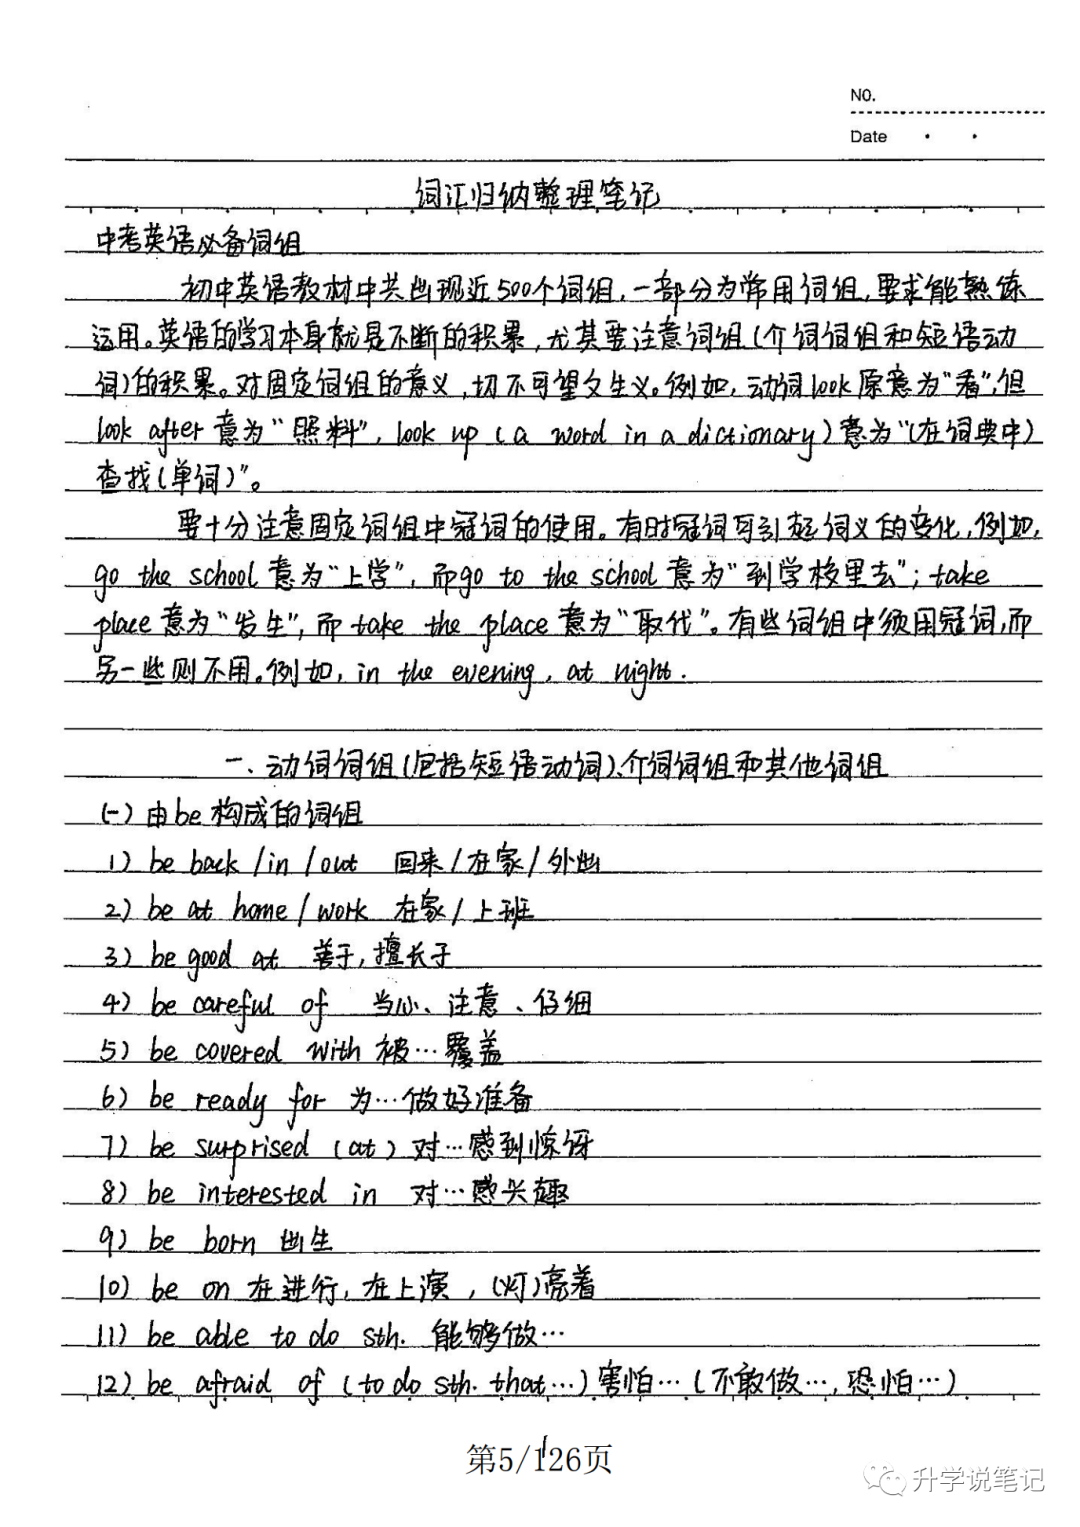 NO.
Date
词汇归纳整理笔记
中考英语必备词组
初中英语教材中共出现近500个词组,一部分为常用词组,要求能熟练
运用。英语的学习本身就是不断的积累,尤其要注意词组(介词词组和短语动
词)的积累。对固定词组的意义,切不可望文生义。例如,动词look原意为“看”,但
look after意为“照料”,look up (a word in a dictionary)意为“(在词典中)
查找(单词)”。
要十分注意固定词组中冠词的使用。有时冠词可引起词义的变化,例如,
go the school意为“上学”,而go to the school意为“到学校里去”;take
place意为“发生”,而take the place意为“取代”。有些词组中须用冠词,而
另一些则不用。例如,in the evening, at night.
一、动词词组(包括短语动词)、介词词组和其他词组
(一)由be构成的词组
1) be back/in/out 回来/在家/外出
2) be at home/work 在家/上班
3) be good at 善于,擅长于
4) be careful of 当心、注意、仔细
5) be covered with 被…覆盖
6) be ready for 为…做好准备
7) be surprised (at) 对…感到惊讶
8) be interested in 对…感兴趣
9) be born 出生
10) be on 在进行,在上演,(灯)亮着
11) be able to do sth. 能够做…
12) be afraid of (to do sth. that…)害怕…(不敢做…,恐怕…)
第5/126页
升学说笔记